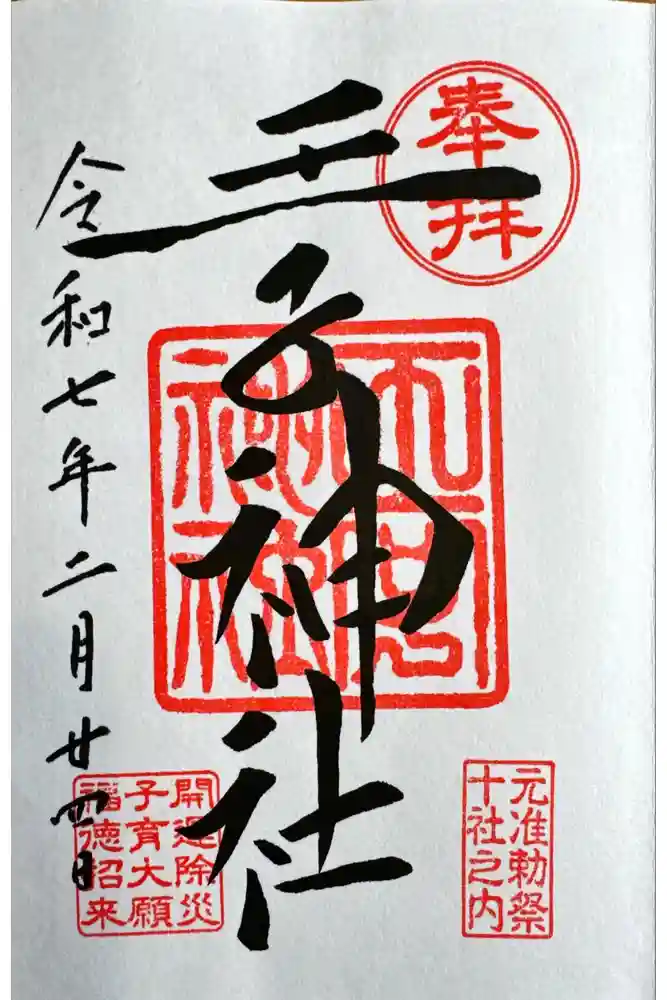 奉拝
王子神社
令和七年二月廿四日
元准勅祭
十社之内
開運除災
子育大願
福徳招来